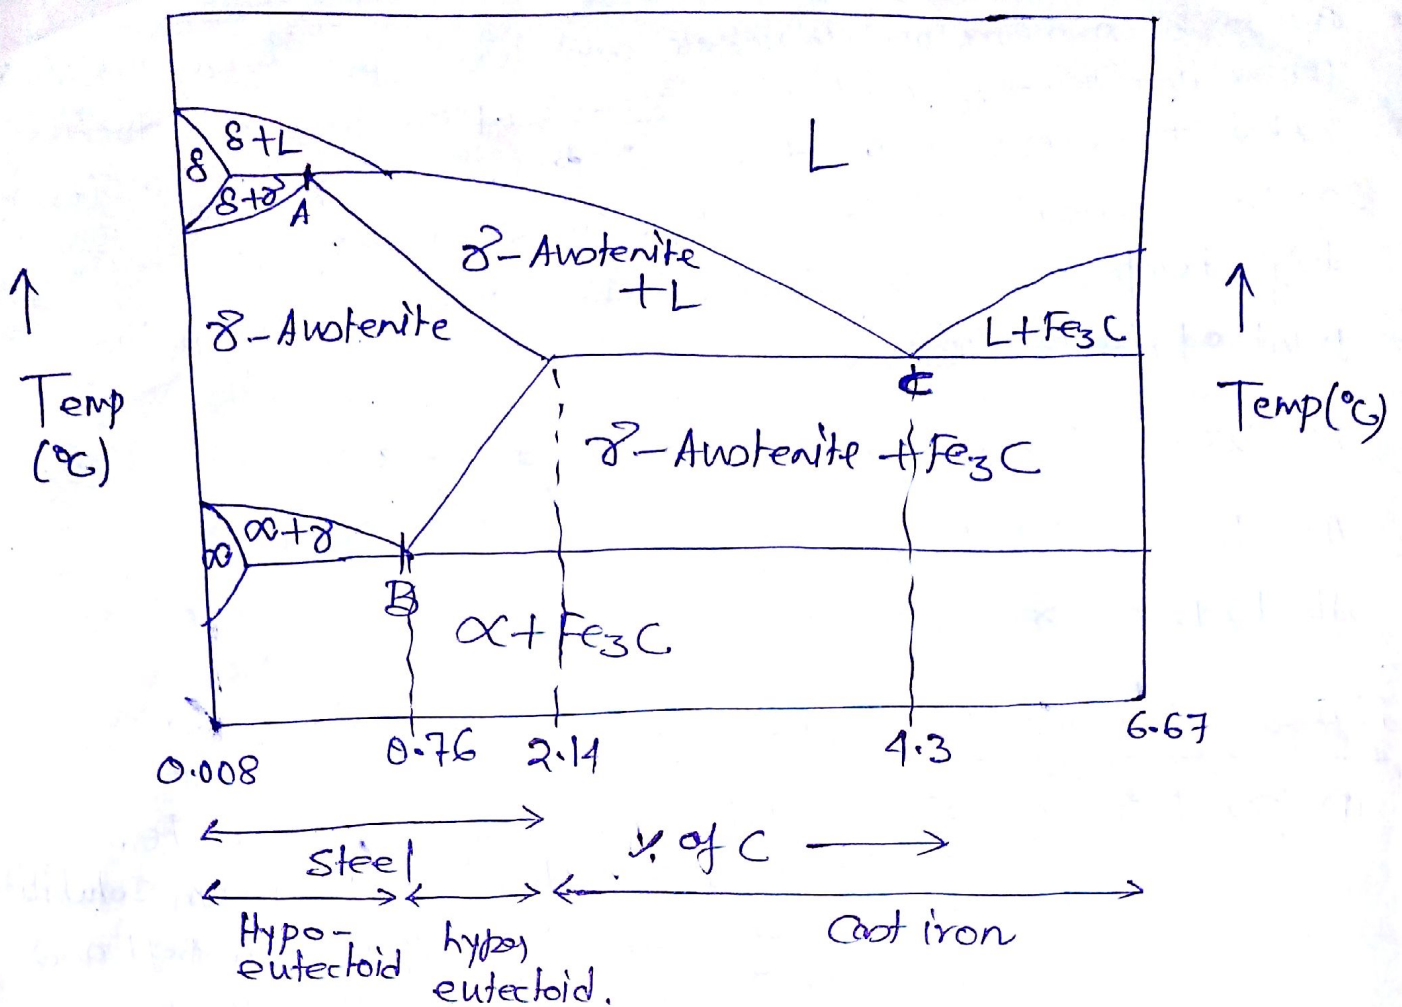 L
δ+L
δ
δ+γ
A
γ-Austenite
+L
γ-Austenite
L+Fe3C
↑
Temp
(°C)
↑
Temp(°C)
C
γ-Austenite + Fe3C
α+γ
α
B
α+Fe3C
0.008
0.76
2.14
4.3
6.67
Steel
% of C
Hypo-
eutectoid
hyper
eutectoid.
Cast iron